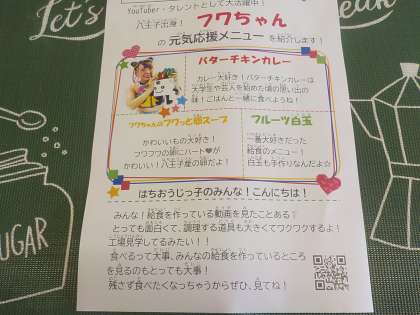 Let's
YouTuber・タレントとして大活躍中！
八王子出身！ フワちゃん
の 元気応援メニュー を紹介します！
バターチキンカレー
カレー大好き！バターチキンカレーは
大学生や芸人を始めた頃の思い出の
味！ごはんと一緒に食べようね！
フワちゃんのフワッと卵スープ
かわいいもの大好き！
フワフワの卵にハート♥が
かわいい！八王子産の卵だよ！
フルーツ白玉
一番大好きだった
給食のメニュー！
白玉も手作りなんだよ☆
はちおうじっ子のみんな！こんにちは！
みんな！給食を作っている動画を見たことある？
とっても面白くて、調理する道具も大きくてワクワクするよ！
工場見学してるみたい！！
食べるって大事、みんなの給食を作っているところ
を見るのもとっても大事！
残さず食べたくなっちゃうからぜひ、見てね！
SUGAR